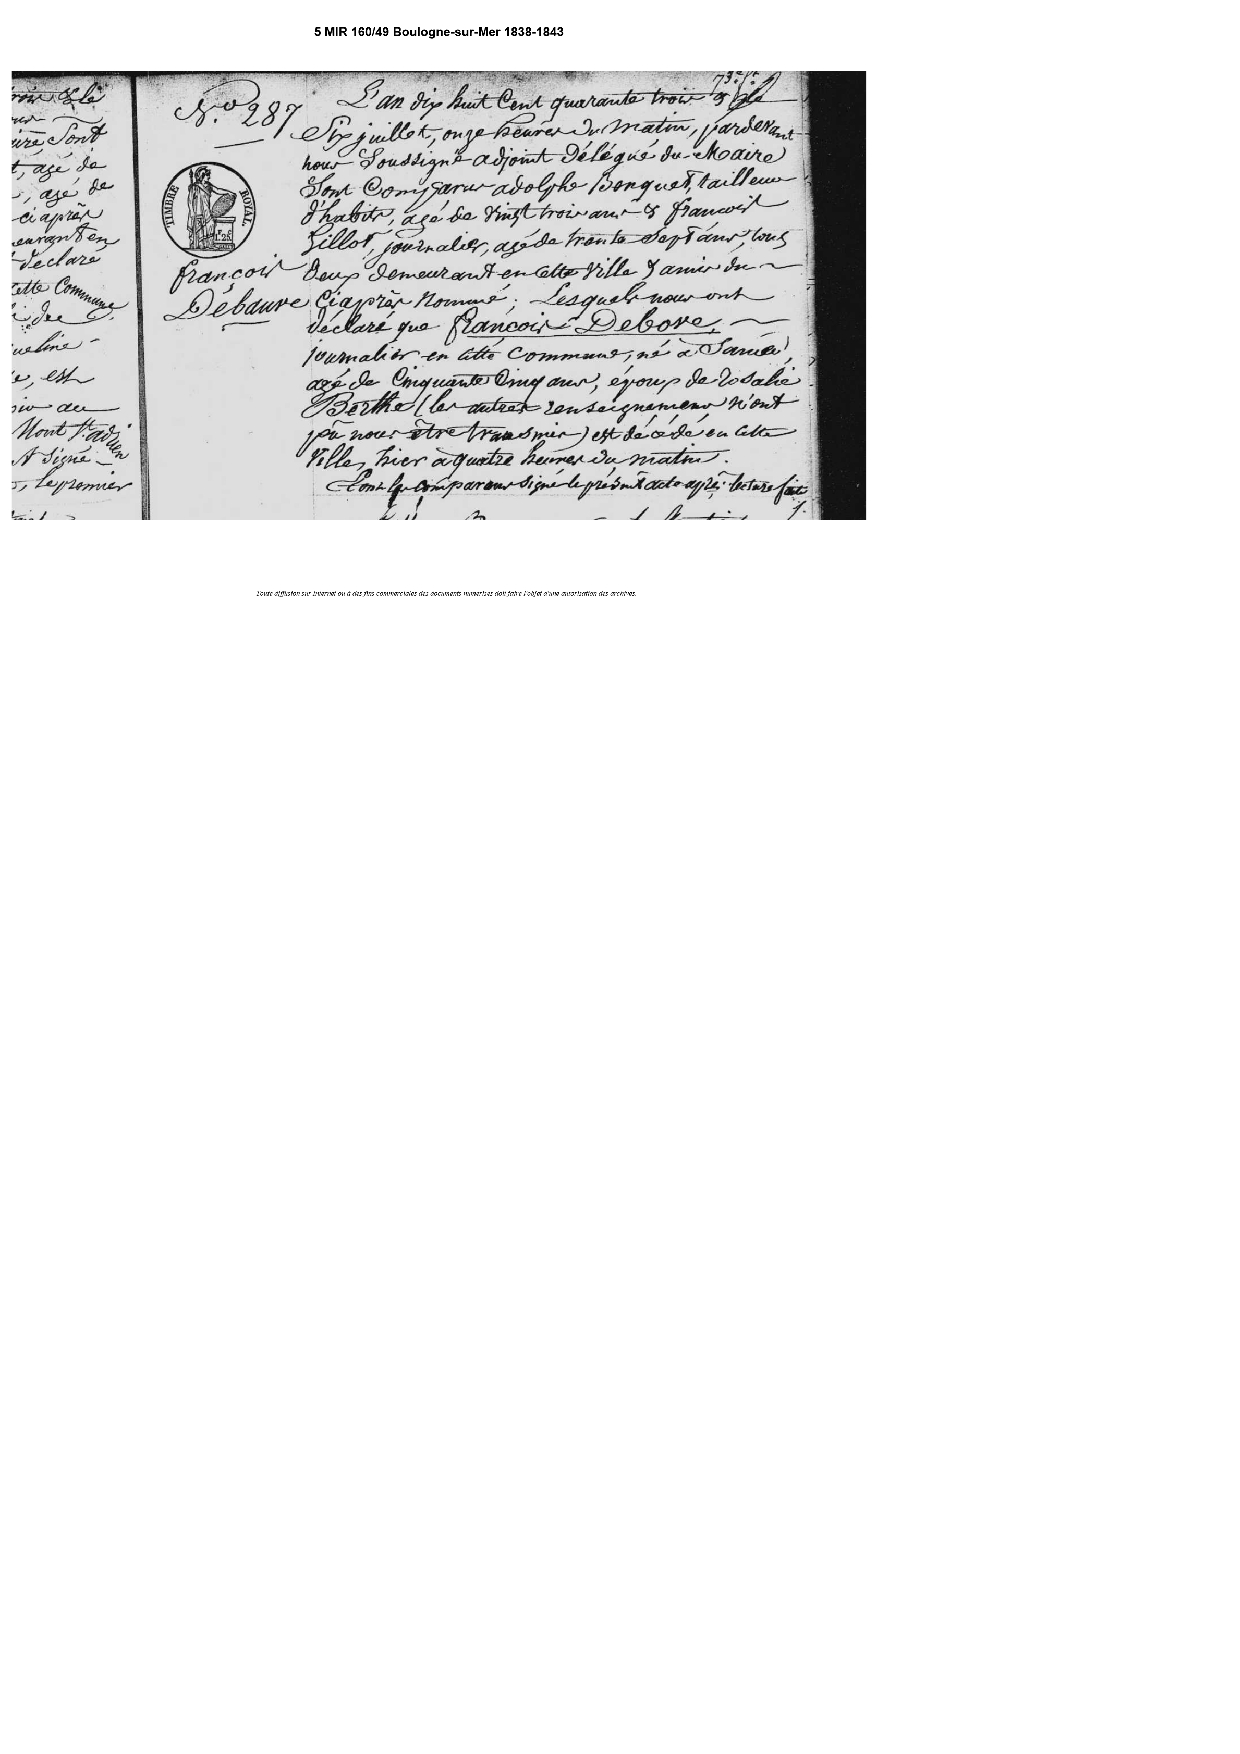 5 MIR 160/49 Boulogne-sur-Mer 1838-1843
73e. ft.
N.o 287
TIMBRE ROYAL
françois
Débauve
L'an dix huit Cent quarante trois & le
Six juillet, onze heures du matin, pardevant
nous Soussigné adjoint Délégué du Maire
Sont Comparus adolphe Bonquet, tailleur
d'habits, agé de Vingt trois ans & françois
Gillot, journalier, agé de trente Sept ans, tous
deux demeurant en cette Ville & amis du
Ciaprès Nommé ; Lesquels nous ont
déclaré que françois Debove,
journalier en cette Commune, né à Samer,
agé de Cinquante Cinq ans, époux de rosalie
Berthe (les autres renseignemens N'ont
pû nous être transmis) est décédé en cette
Ville, hier à quatre heures du matin.
Les comparans signé le présent acte après lecture faite
ure Sont
t, agé de
, agé de
ciaprès
eurant en
déclaré
Cette Commune
ueline
e, est
Mont St. adrien
A Signé
, Le premier
Toute diffusion sur Internet ou à des fins commerciales des documents numérisés doit faire l'objet d'une autorisation des archives.